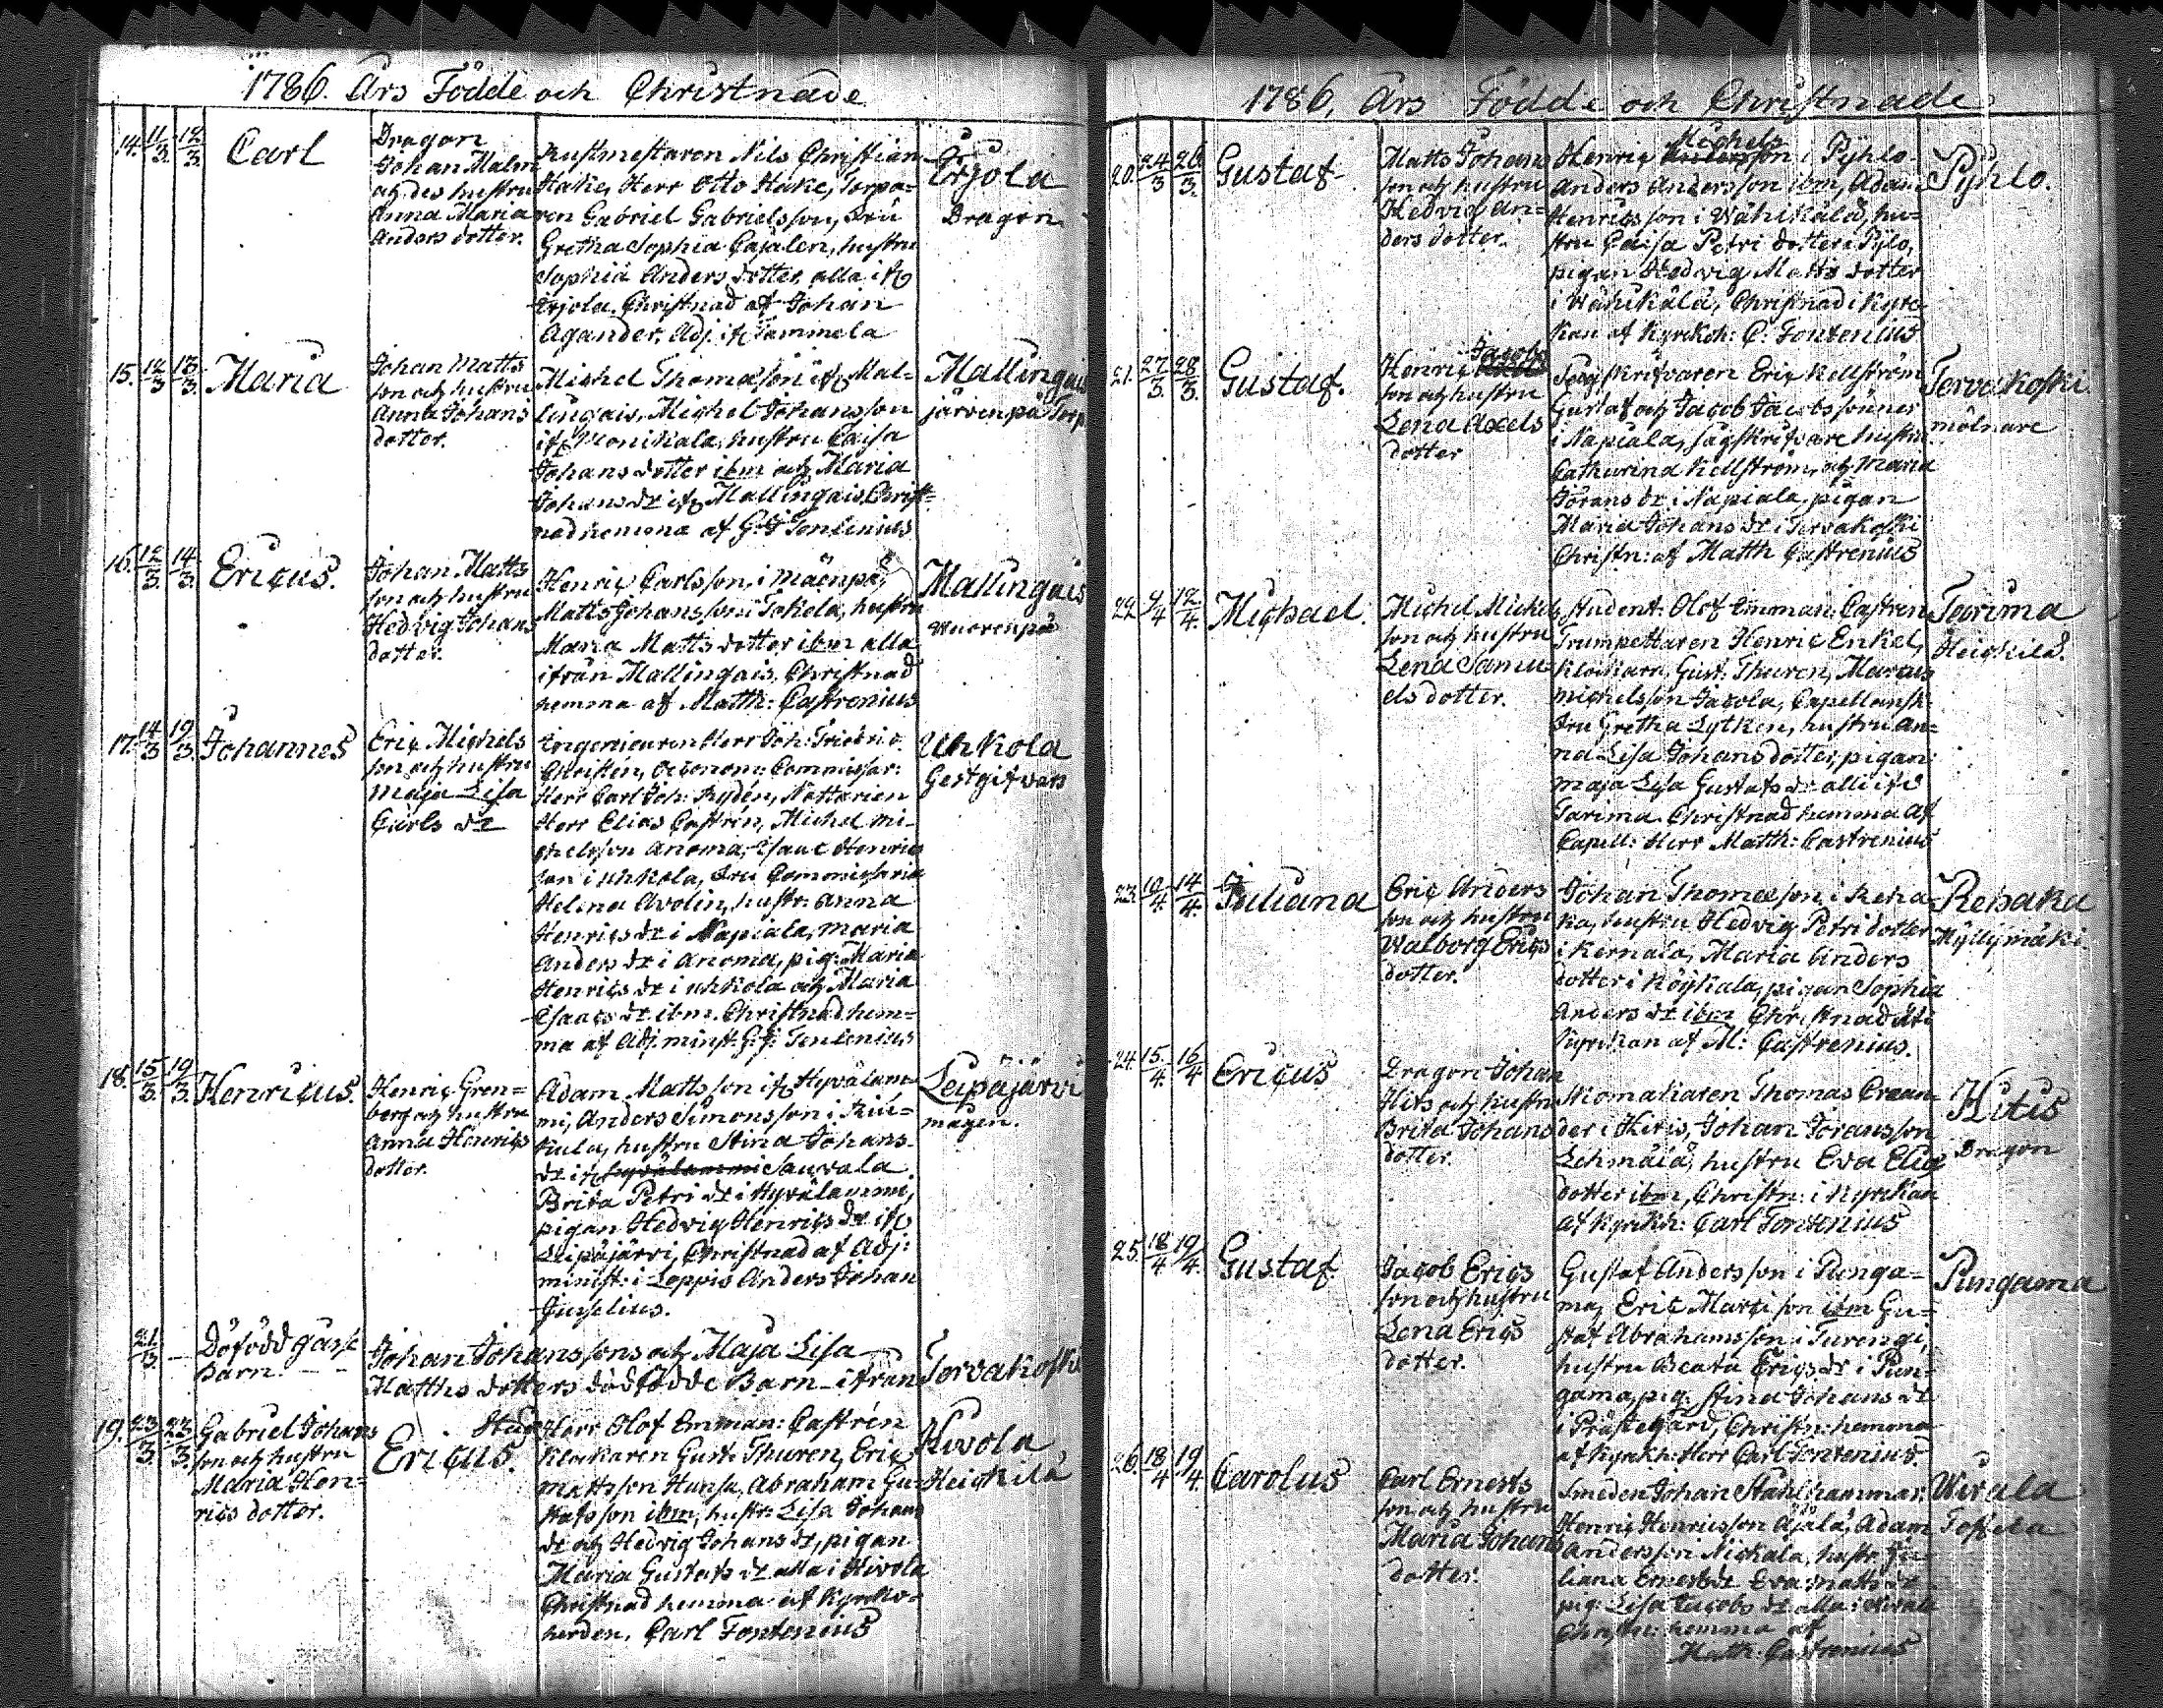 1786. Års Födde och Christnade
14. 11/3. 12/3. Carl
Dragon
Johan Malm
och des hustru
Anna Maria
Anders dotter.
Rustmestaren Nils Christian
Hake, Herr Otto Hake, Torpa=
ren Gabriel Gabrielsson, Fru
Gretha Sophia Cajalen, hustru
Sophia Anders dotter, alla ifr
Erjola. Christnad af Johan
Agander, Adj. ifr Tammela
Erjola
Dragon
15. 12/3 13/3. Maria
Johan Matts
son och hustru
Anna Johans
dotter.
Michel Thomasson ifr Mal=
lingais, Michel Johansson
ifr Monikala, hustru Caisa
Johans dotter ibm och Maria
Johans dr ifr Mallingais, Christ=
nad hemma af G: J Tenlenius
Mallingais
järvenpä Torp
16. 12/3. 14/3. Ericus.
Johan Matts
son och hustru
Hedvig Johans
dotter.
Henric Carlsson, i Mäenpä,
Matts Johansson i Tokola, hustru
Maria Matts dotter ibm alla
ifrån Mallingais, Christnad
hemma af Matth: Castrenius
Mallingais
Wuorenpä
17. 14/3 19/3. Johannes
Eric Michels
son och hustru
Maja Lisa
Carls dr
Ingenieuren Herr Joh: Friedric
Christen, Oeconom: Commissar:
Herr Carl Joh: Ryden, Nottarien
Herr Elias Castrén, Michel Mi=
chelsson Anoma, Isaac Henrics
son i Uhkola, Fru Commissaria
Helena Avolin, hustr: Anna
Henrics dr i Napiala, Maria
Anders dr i Anoma, pig: Maria
Henrics dr i Uhkola och Maria
Isaacs dr ibm. Christnad hem=
ma af Adj. minist. G: J: Tenlenius
Uhkola
Gestgifvars
18. 15/3. 19/3. Henricus.
Henric Gren=
berg och hustru
Anna Henrics
dotter.
Adam Mattsson ifr Hyvälam
mi, Anders Simonsson i
hustru Stina Johans
dr ifr Hyvälammi Sauvala
Brita Petri dr i Hyvälammi,
pigan Hedvig Henrics dr ifr
Leipäjärvi, Christnad af Adj:
minist: i Loppis Anders Johan
Juselius.
Leipäjärvi
mågen.
21/3 — Döfödd gåsse
Barn. — —
Johan Johanssons och Maja Lisa
Matths dotters dödfödde Barn ifrån
Torvakoski
19. 23/3. 23/3. Gabriel Johans
son och hustru
Maria Hen=
rics dotter.
Ericus.
Stud Herr Olof Emman: Castrén
Klockaren Gust: Thuren, Eric
Mattsson Hunsa, Abraham Gu=
stafsson ibm, hustr: Lisa Johans
dr och Hedvig Johans dr, pigan
Maria Gustafs dr alla i Hivola
Christnad hemma af Kyrkio=
herden, Carl Fontenius
Hivola
Heickilä
1786, Års Födde och Christnade
20. 24/3 26/3. Gustaf
Matts Johans
son och hustru
Hedvig An=
ders dotter.
Michels
Henric Andersson i Pyhlo
Anders Andersson ibm, Adam
Henricsson i Wähikälä, hu=
stru Caisa Petri dotter i Pylo,
pigan Hedvig Matts dotter
i Wähikälä, Christnad i Kyrc=
kan af Kyrckoh: C: Fontenius
Pyhlo.
21. 27/3. 28/3. Gustaf.
Jacobs
Henric
son och hustru
Lena Axels
dotter
Sågskrifvaren Eric Kellström
Gustaf och Jacob Jacobs söner
i Napiala, sågskrifvare hustru
Catharina Kellström, och Maria
Jörans dr i Napiala, pigan
Maria Johans dr i Tervakoski
Christn: af Matth Castrenius
Tervakoski
mölnare
22. 9/4 12/4. Michael.
Michel Michels
son och hustru
Lena Samu=
els dotter.
Student: Olof Emman: Castren
Trumpettaren Henric Enkel,
Klockarn, Gust: Thuren, Marcus
Michelsson Jacola, Capellansk:
Fru Gretha Lytken, hustru An=
na Lisa Johans dotter, pigan
Maja Lisa Gustafs dr alla ifr
Tarima. Christnad hemma af
Capell: Herr Matth: Castrenius
Tarima
Heickilä.
23. 10/4. 14/4. Juliana
Eric Anders
son och hustru
Walborg Erics
dotter.
Johan Thomasson, i Reha
ka, hustru Hedvig Petri dotter
i Kernala, Maria Anders
dotter i Köykala, pigan Sophia
Anders dr ibm Christnad uti
Kyrckan af M: Castrenius.
Rehaka
Myllymäki
24. 15/4 16/4 Ericus
Dragon Johan
Hits och hustru
Brita Johans
dotter.
Skomakaren Thomas Eraan
der i Hitis, Johan Joransson
Lehmäiä, hustru Eva Elia
dotter ibm, Christn: i Kyrckan
af Kyrckh: Carl Fontenius
Hitis
Dragon
25. 18/4 19/4. Gustaf.
Jacob Erics
son och hustru
Lena Erics
dotter.
Gustaf Andersson i Punga=
ma, Eric Martisson ibm Gu=
staf Abrahamsson i Turengi,
hustru Beata Erics dr i Pun=
gama, pig: Stina Johans dr
i Prästegård, Christn: hemma
af Kyrckh: Herr Carl Fontenius
Pungama
26. 18/4 19/4. Carolus
Carl Ernests
son och hustru
Maria Johans
dotter.
Smeden Johan Stahlhammar.
Henric Henricsson Äjälä, Adam
Andersson Nickala, hustr: Ju=
liana Ernests dr Eva Matts dr
pig: Lisa Jacobs dr alla i Wirala
Christn: hemma af
Matth: Castrenius
Wirala